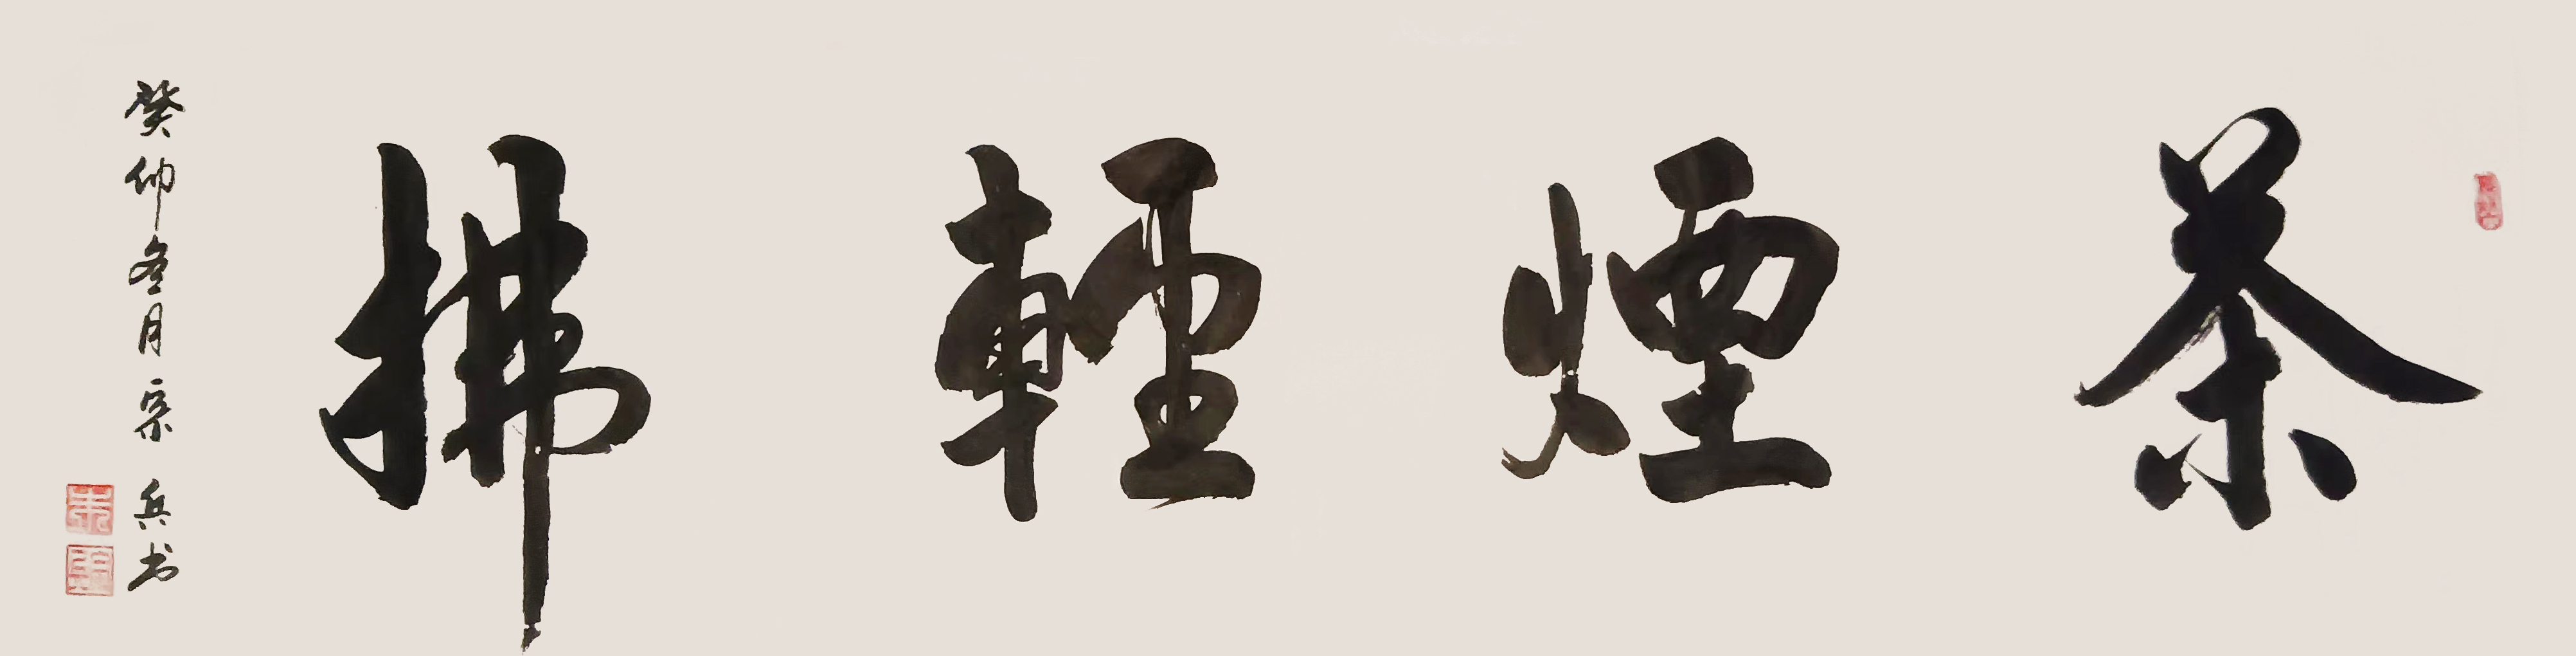 茶煙輕拂
癸卯冬月宗兵书